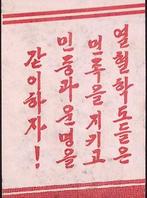 열혈학도들은
민족을지키고
민중과운명을
같이하자!